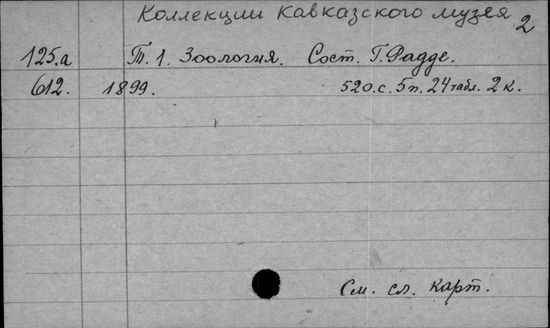 Коллекции Кавказского музея 2
125.а Т. 1. Зоология. Сост. Г. Радде.
612. 1899. 520.с. 5п. 24 табл. 2 к.
См. сл. карт.